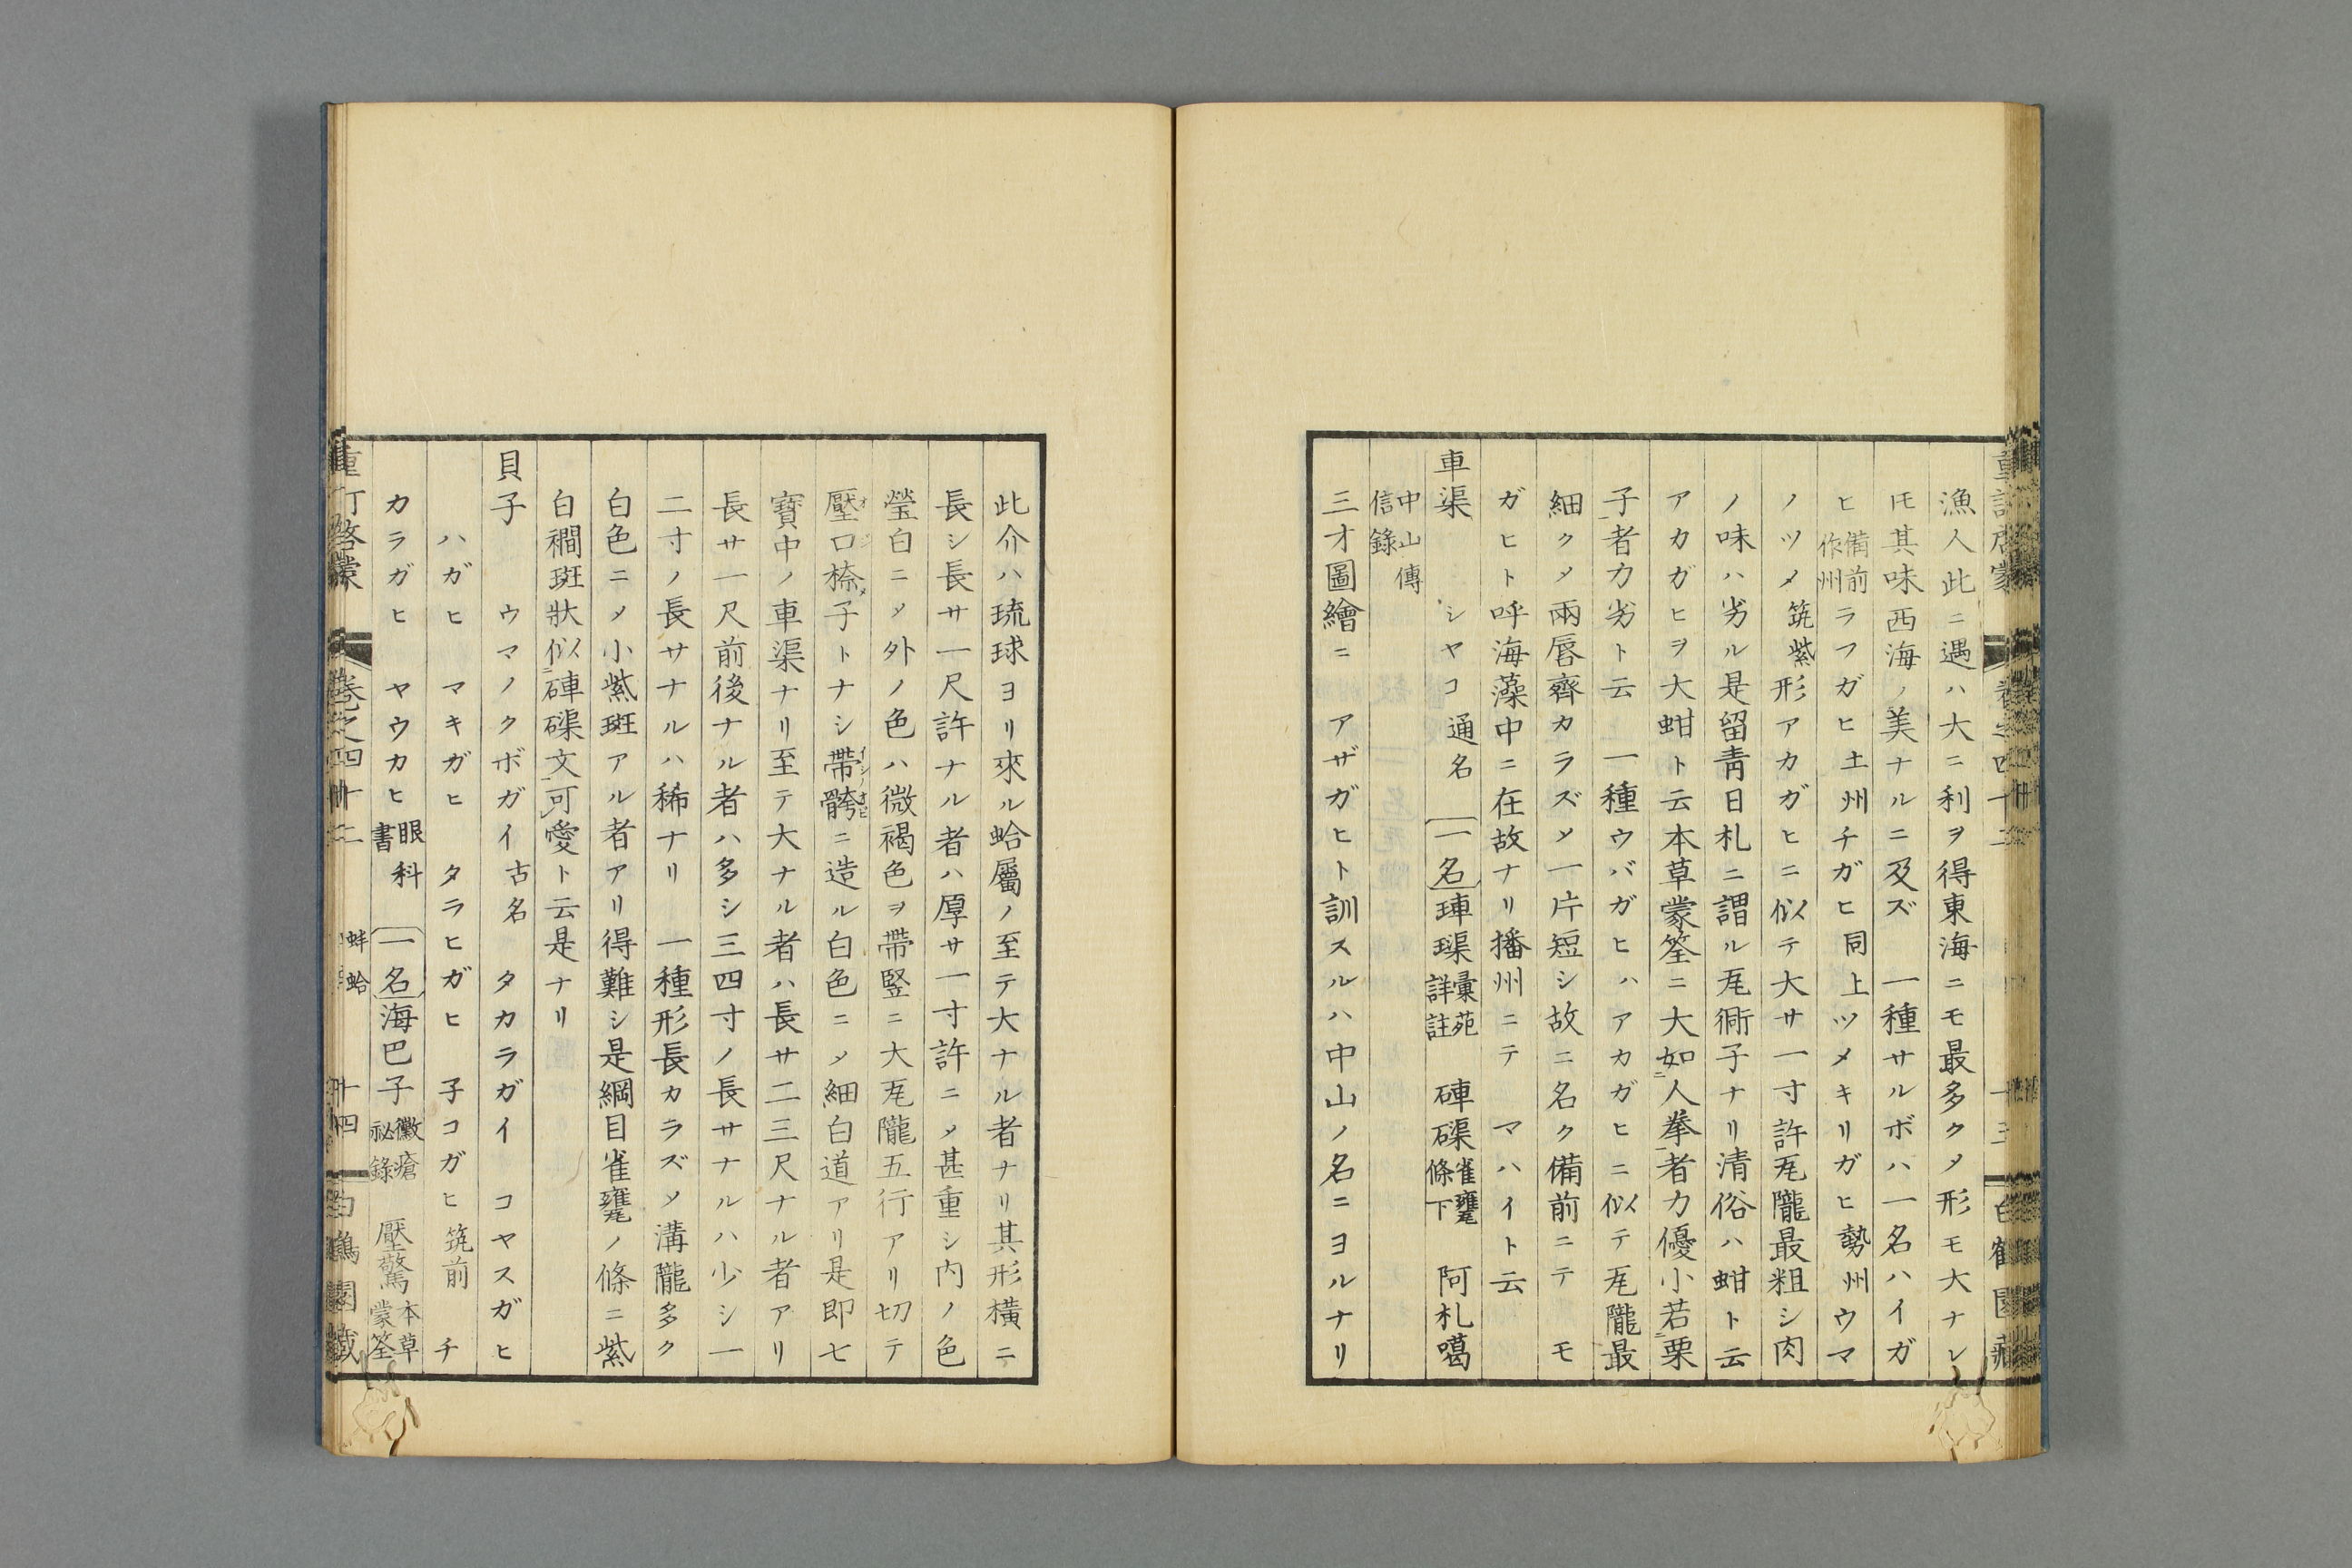 漁人此ニ遇ハ大ニ利ヲ得東海ニモ最多クメ形モ大ナレ
𪜈其味西海ノ美ナルニ及ズ　一種サルボハ一名ハイガ
ヒ備前作州ラフガヒ土州チガヒ同上ツメキリガヒ勢州ウマ
ノツメ筑紫形アカガヒニ似テ大サ一寸許瓦隴最粗シ肉
ノ味ハ劣ル是留靑日札ニ謂ル瓦衖子ナリ清俗ハ蚶ト云
アカガヒヲ大蚶ト云本草蒙筌ニ大如ニ人拳一者力優小若ニ栗
子一者力劣ト云　一種ウバガヒハアカガヒニ似テ瓦隴最
細クメ兩唇齊カラズメ一片短シ故ニ名ク備前ニテ　モ
ガヒト呼海藻中ニ在故ナリ播州ニテ　マハイト云
車渠　シヤコ通名　一名硨璖彙苑詳註　硨磲雀甕條下　阿札噶
中山傳信錄
三才圖繪ニ　アザガヒト訓スルハ中山ノ名ニヨルナリ
此介ハ琉球ヨリ來ル蛤屬ノ至テ大ナル者ナリ其形橫ニ
長シ長サ一尺許ナル者ハ厚サ一寸許ニメ甚重シ內ノ色
瑩白ニメ外ノ色ハ微褐色ヲ帶竪ニ大瓦隴五行アリ切テ
壓口㮈子トナシ帶胯ニ造ル白色ニメ細白道アリ是卽七
寶中ノ車渠ナリ至テ大ナル者ハ長サ二三尺ナル者アリ
長サ一尺前後ナル者ハ多シ三四寸ノ長サナルハ少シ一
二寸ノ長サナルハ稀ナリ　一種形長カラズメ溝隴多ク
白色ニメ小紫斑アル者アリ得難シ是綱目雀甕ノ條ニ紫
白襉斑狀似ニ硨磲文一可愛ト云是ナリ
貝子　ウマノクボガイ古名　タカラガイ　コヤスガヒ
ハガヒ　マキガヒ　タラヒガヒ　子コガヒ筑前　チ
カラガヒ　ヤウカヒ眼科書　一名海巴子黴瘡祕錄　壓驚本草蒙筌